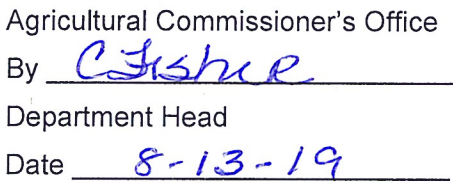 Agricultural Commissioner's Office
By C Fisher
Department Head
Date 8-13-19